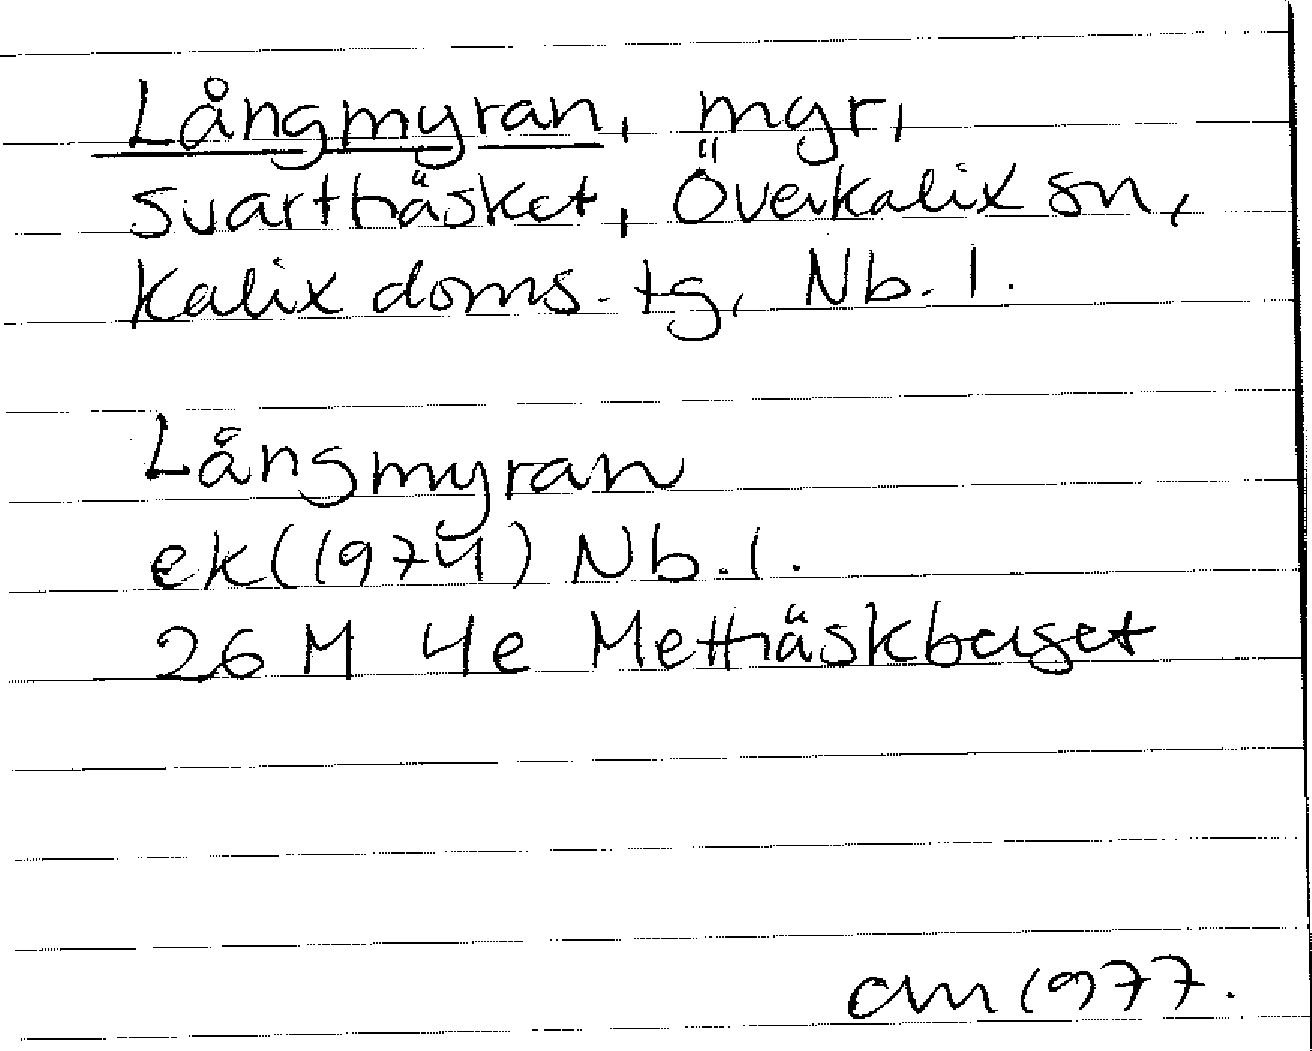 Långmyran, myr,
Svartträsket, Överkalix sn,
Kalix doms. tg, Nb. l.
Långmyran
ek (1974) Nb. l.
26 M 4e Metträskberget
am 1977.